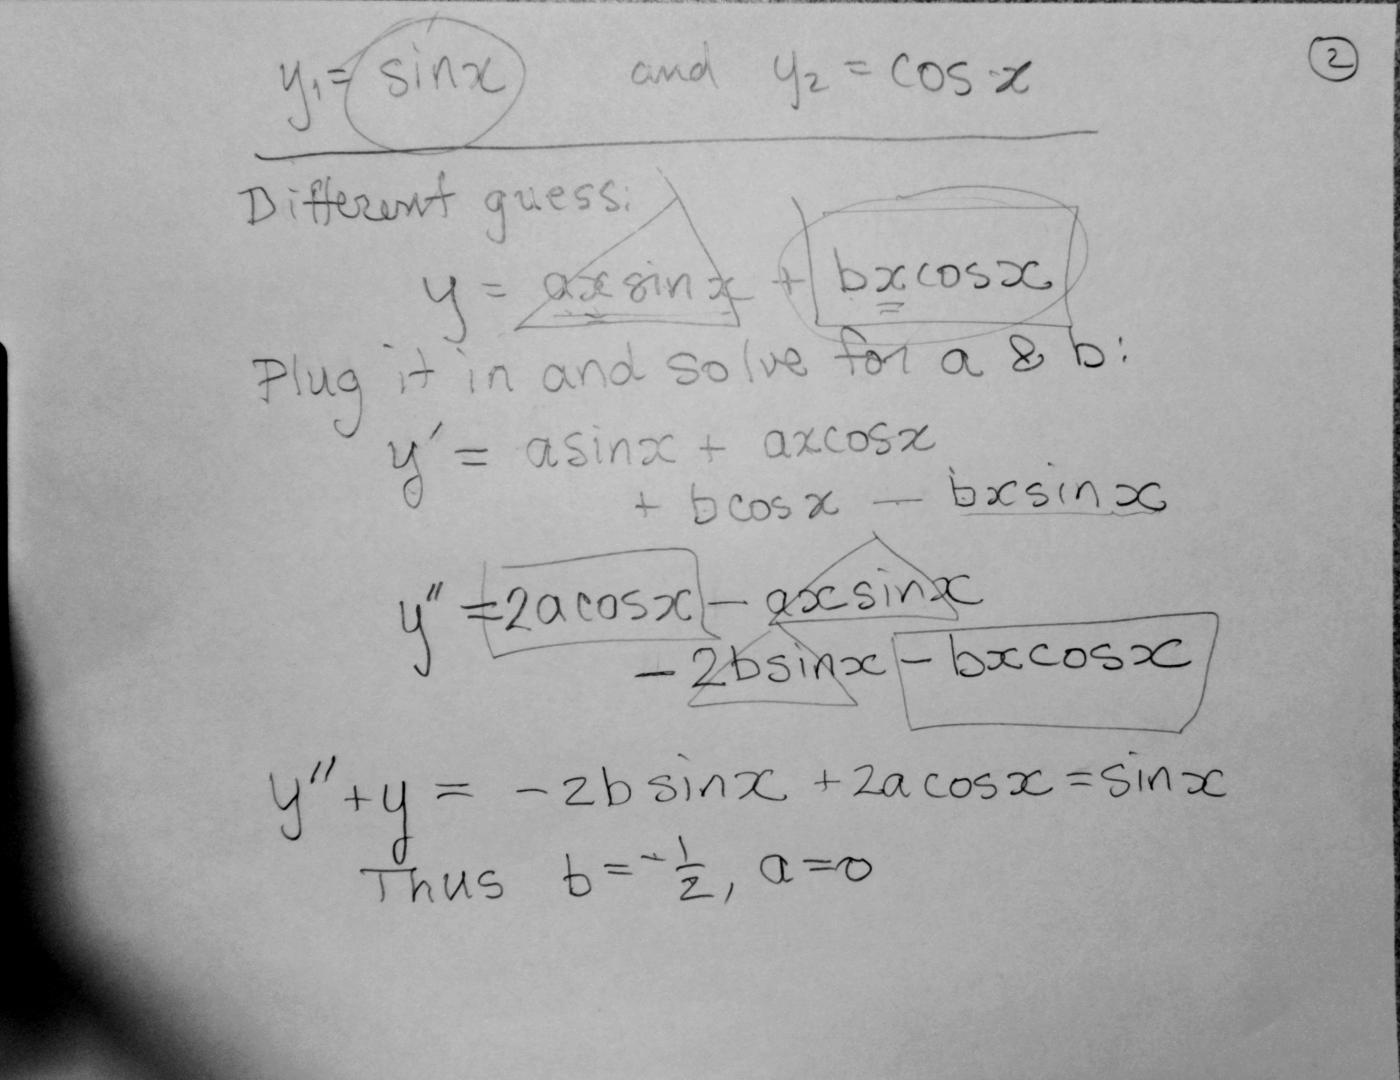 y₁ = sinx and y₂ = cos x ②
Different guess:
y = ax sinx + bx cosx
Plug it in and solve for a & b:
y' = a sinx + ax cosx
+ b cos x − bx sin x
y'' = 2a cosx − ax sinx
− 2b sinx − bx cosx
y'' + y = −2b sinx + 2a cosx = sinx
Thus b = -½, a = 0